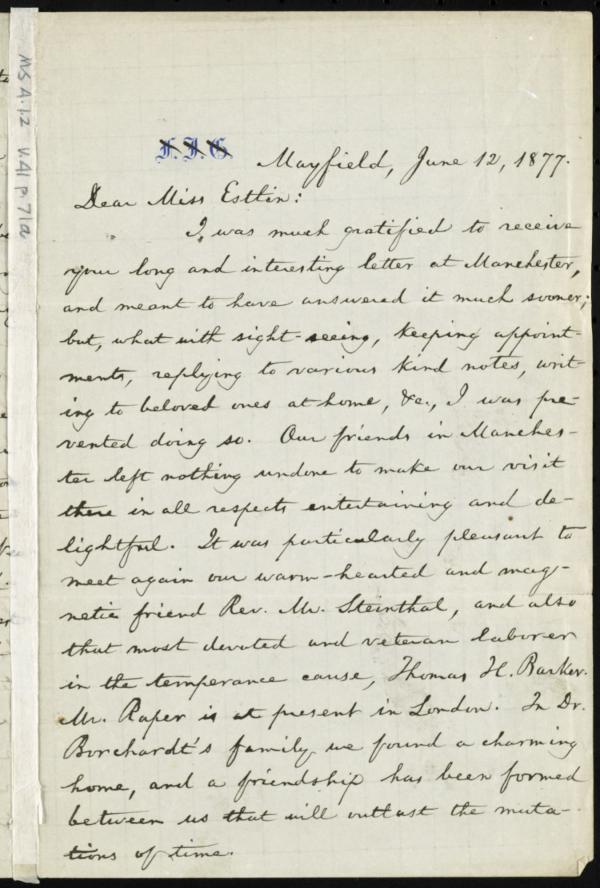 MS A.1.2 V.41 p.71a
F.J.G
Mayfield, June 12, 1877.
Dear Miss Estlin:
I was much gratified to receive
your long and interesting letter at Manchester,
and meant to have answered it much sooner;
but, what with sight-seeing, keeping appoint-
ments, replying to various kind notes, writ-
ing to beloved ones at home, &c., I was pre-
vented doing so. Our friends in Manches-
ter left nothing undone to make our visit
there in all respects entertaining and de-
lightful. It was particularly pleasant to
meet again our warm-hearted and mag-
netic friend Rev. Mr. Steinthal, and also
that most devoted and veteran laborer
in the temperance cause, Thomas H. Barker.
Mr. Raper is at present in London. In Dr.
Borchardt's family we found a charming
home, and a friendship has been formed
between us that will outlast the muta-
tions of time.